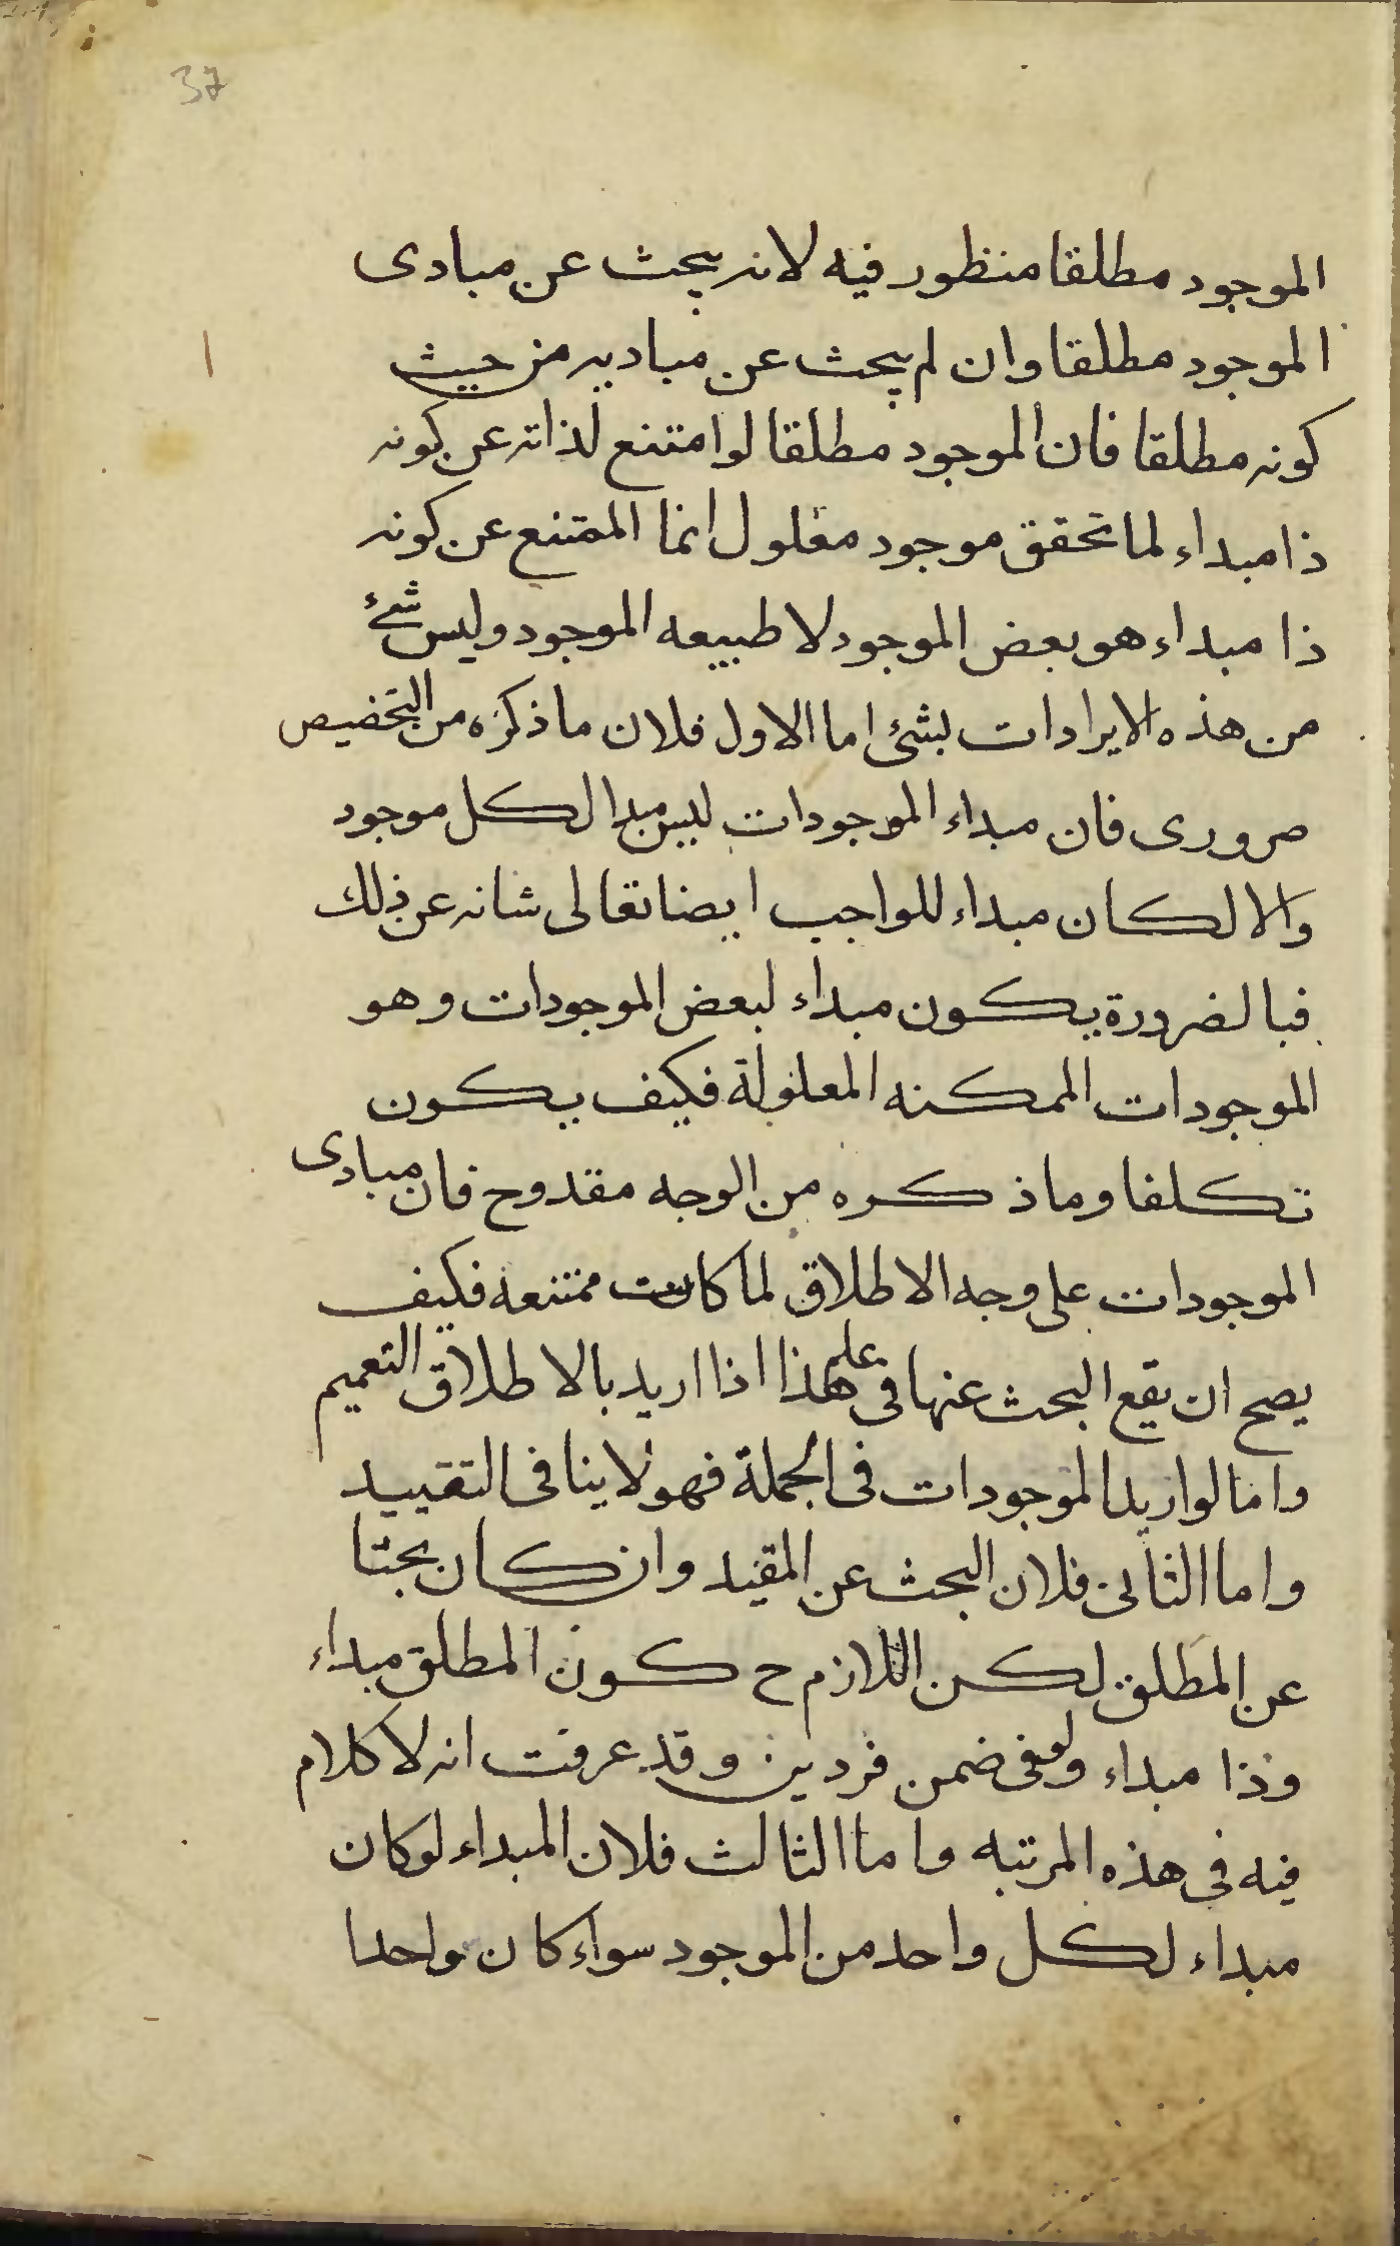 37
الموجود مطلقا منظور فيه لانه يبحث عن مبادى
الموجود مطلقا وان لم يبحث عن مباديه من حيث
كونه مطلقا فان الموجود مطلقا لو امتنع لذاته عن كونه
ذا مبداء لما تحقق موجود معلول انما الممتنع عن كونه
ذا مبداء هو بعض الموجود لا طبيعه الموجود وليس شئ
من هذه الايرادات بشئ اما الاول فلان ما ذكره من التخصيص
ضرورى فان مبداء الموجودات ليس مبدا لكل موجود
والا لكان مبداء للواجب ايضا تعالى شانه عن ذلك
فبالضرورة يكون مبداء لبعض الموجودات وهو
الموجودات الممكنه المعلولة فكيف يكون
تكلفا وما ذكره من الوجه مقدوح فان مبادى
الموجودات على وجه الاطلاق لما كانت ممتنعة فكيف
يصح ان يقع البحث عنها فى علم هذا اذا اريد بالاطلاق التعميم
واما لو اريد الموجودات فى الجملة فهو لا ينافى التقييد
واما الثانى فلان البحث عن المقيد وان كان بحثا
عن المطلق لكن اللازم ح كون المطلق مبداء
وذا مبداء ولو فى ضمن فردين وقد عرفت انه لا كلام
فيه فى هذه المرتبه واما الثالث فلان المبداء لو كان
مبداء لكل واحد من الموجود سواء كان واحدا